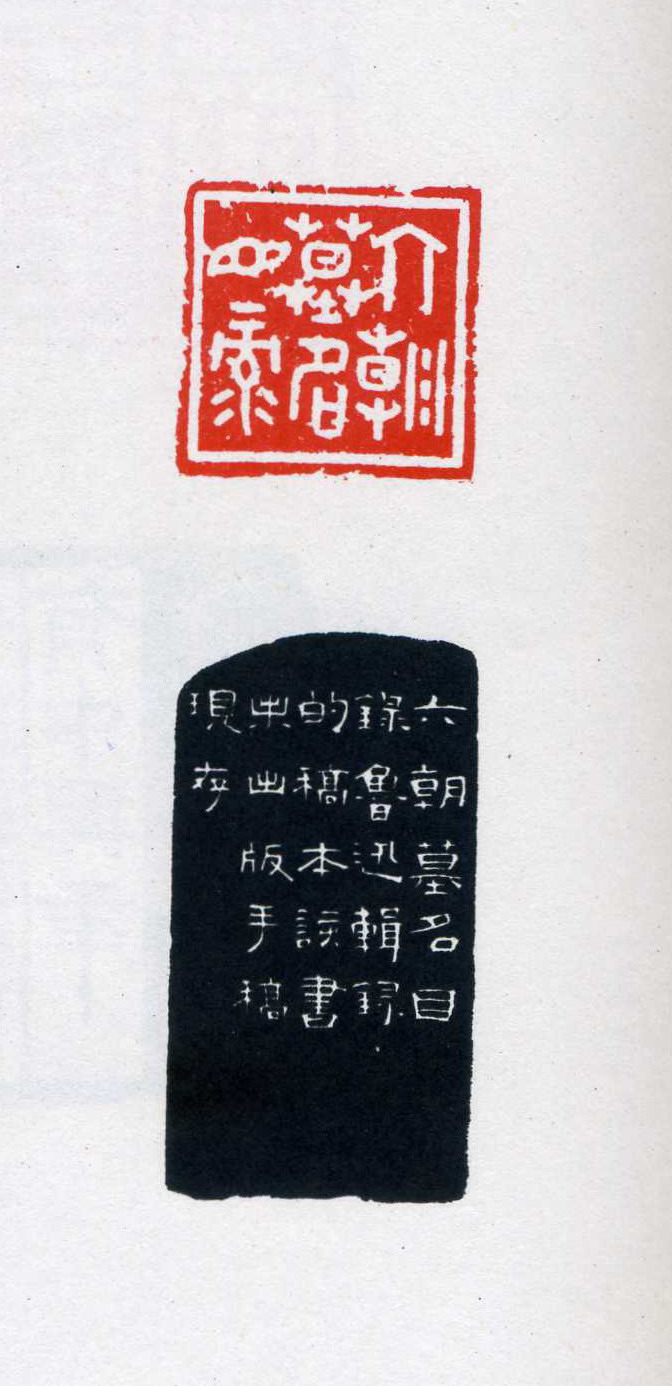 六朝
墓名
目录
六朝墓名目
錄魯迅輯録
的稿本該書
未出版手稿
現存